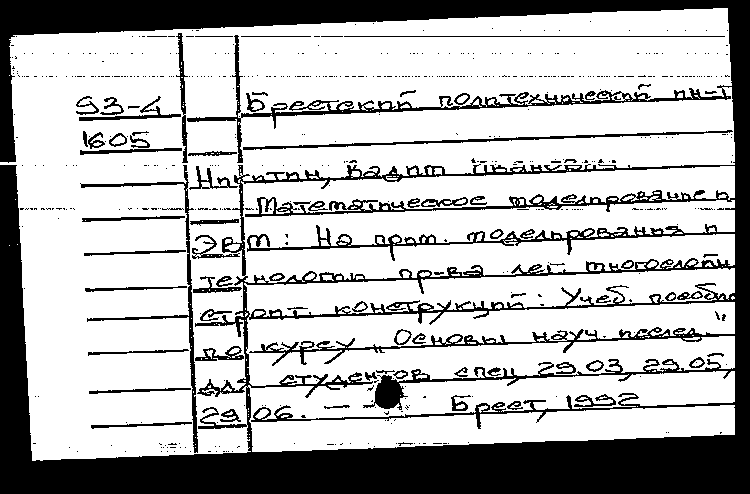 93-4 Брестский политехнический ин-т
1605
Никитин, Вадим Иванович.
Математическое моделирование и
ЭВМ: На прим. моделирования и
технологии пр-ва лег. многослойн
строит. конструкций: Учеб. пособие
по курсу „Основы науч. исслед."
для студентов спец. 29.03, 29.05,
29.06. — — Брест, 1992